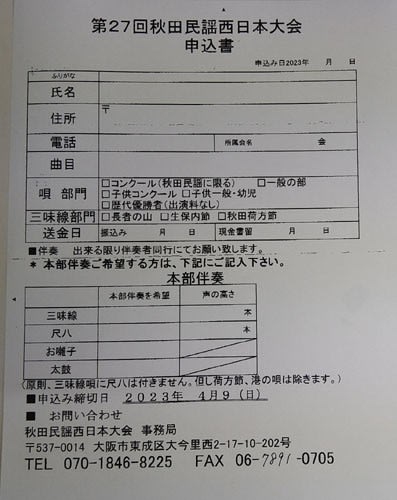 第27回秋田民謡西日本大会
申込書
申込み日2023年　月　日
ふりがな
氏名
住所 〒
電話 所属会名 会
曲目
唄 部門 □コンクール(秋田民謡に限る) □一般の部
□子供コンクール □子供一般・幼児
□歴代優勝者(出演料なし)
三味線部門 □長者の山 □生保内節 □秋田荷方節
送金日 振込み 月 日 現金書留 月 日
■伴奏 出来る限り伴奏者同行にてお願い致します。
* 本部伴奏ご希望する方は、下記にご記入下さい。
本部伴奏
本部伴奏を希望 声の高さ
三味線 本
尺八 本
お囃子
太鼓
(原則、三味線唄に尺八は付きません。但し荷方節、港の唄は除きます。)
■申込み締切日 2023年 4月9(日)
■ お問い合わせ
秋田民謡西日本大会 事務局
〒537-0014 大阪市東成区大今里西2-17-10-202号
TEL 070-1846-8225 FAX 06-7891-0705